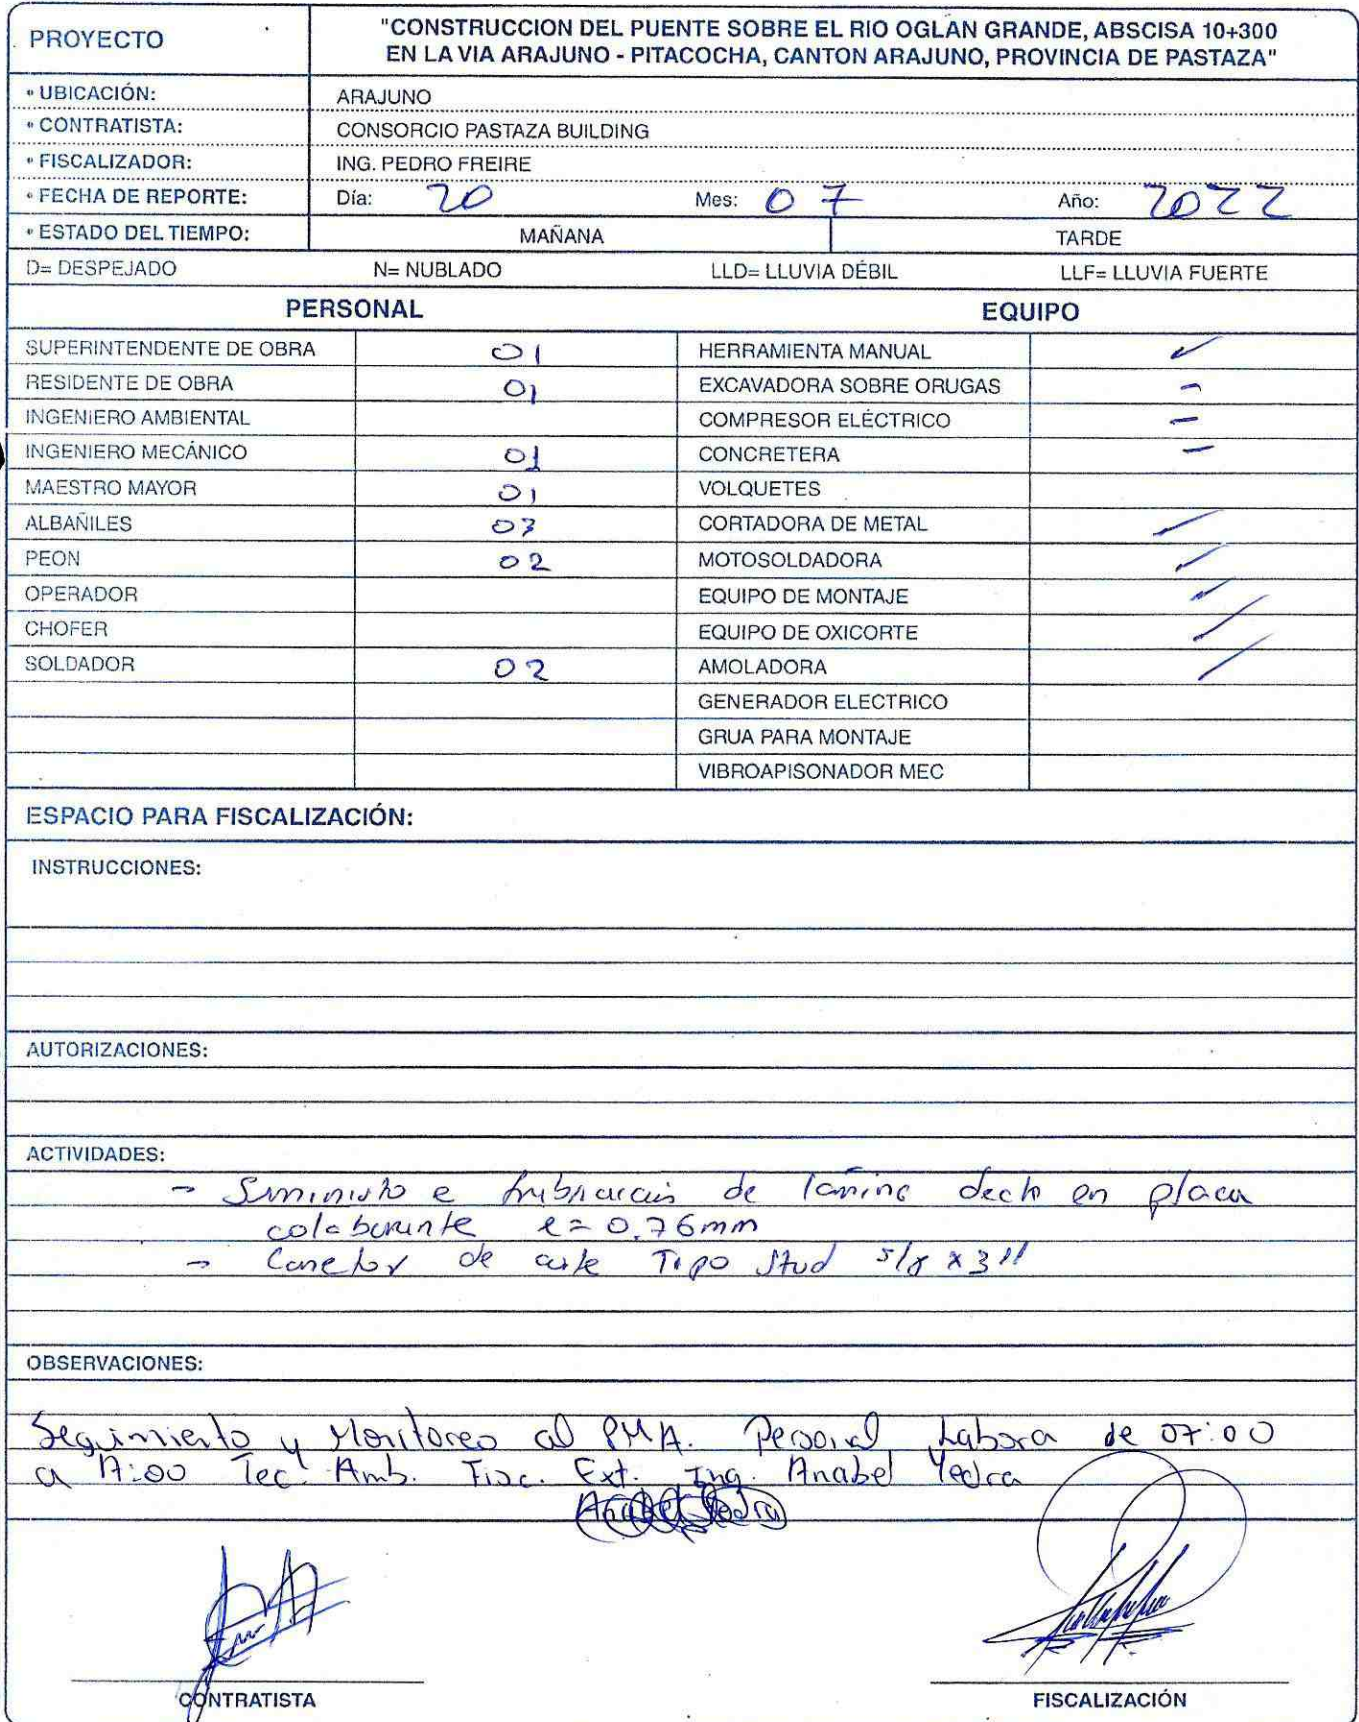 PROYECTO
"CONSTRUCCION DEL PUENTE SOBRE EL RIO OGLAN GRANDE, ABSCISA 10+300
EN LA VIA ARAJUNO - PITACOCHA, CANTON ARAJUNO, PROVINCIA DE PASTAZA"
• UBICACIÓN: ARAJUNO
• CONTRATISTA: CONSORCIO PASTAZA BUILDING
• FISCALIZADOR: ING. PEDRO FREIRE
• FECHA DE REPORTE: Día: 20 Mes: 07 Año: 2022
• ESTADO DEL TIEMPO: MAÑANA TARDE
D= DESPEJADO N= NUBLADO LLD= LLUVIA DÉBIL LLF= LLUVIA FUERTE
PERSONAL EQUIPO
SUPERINTENDENTE DE OBRA 01 HERRAMIENTA MANUAL ✓
RESIDENTE DE OBRA 01 EXCAVADORA SOBRE ORUGAS -
INGENIERO AMBIENTAL COMPRESOR ELÉCTRICO -
INGENIERO MECÁNICO 01 CONCRETERA -
MAESTRO MAYOR 01 VOLQUETES
ALBAÑILES 03 CORTADORA DE METAL ✓
PEON 02 MOTOSOLDADORA ✓
OPERADOR EQUIPO DE MONTAJE ✓
CHOFER EQUIPO DE OXICORTE ✓
SOLDADOR 02 AMOLADORA ✓
GENERADOR ELECTRICO
GRUA PARA MONTAJE
VIBROAPISONADOR MEC
ESPACIO PARA FISCALIZACIÓN:
INSTRUCCIONES:
AUTORIZACIONES:
ACTIVIDADES:
- Suministro e de lamina deck en placa
colaborante e= 0.76mm
- Conector de corte Tipo Stud 5/8 x 3"
OBSERVACIONES:
Seguimiento y Monitoreo al PMA. Personal Labora de 07:00
a 17:00 Tec. Amb. Fisc. Ext. Ing. Anabel Yedra
CONTRATISTA FISCALIZACIÓN